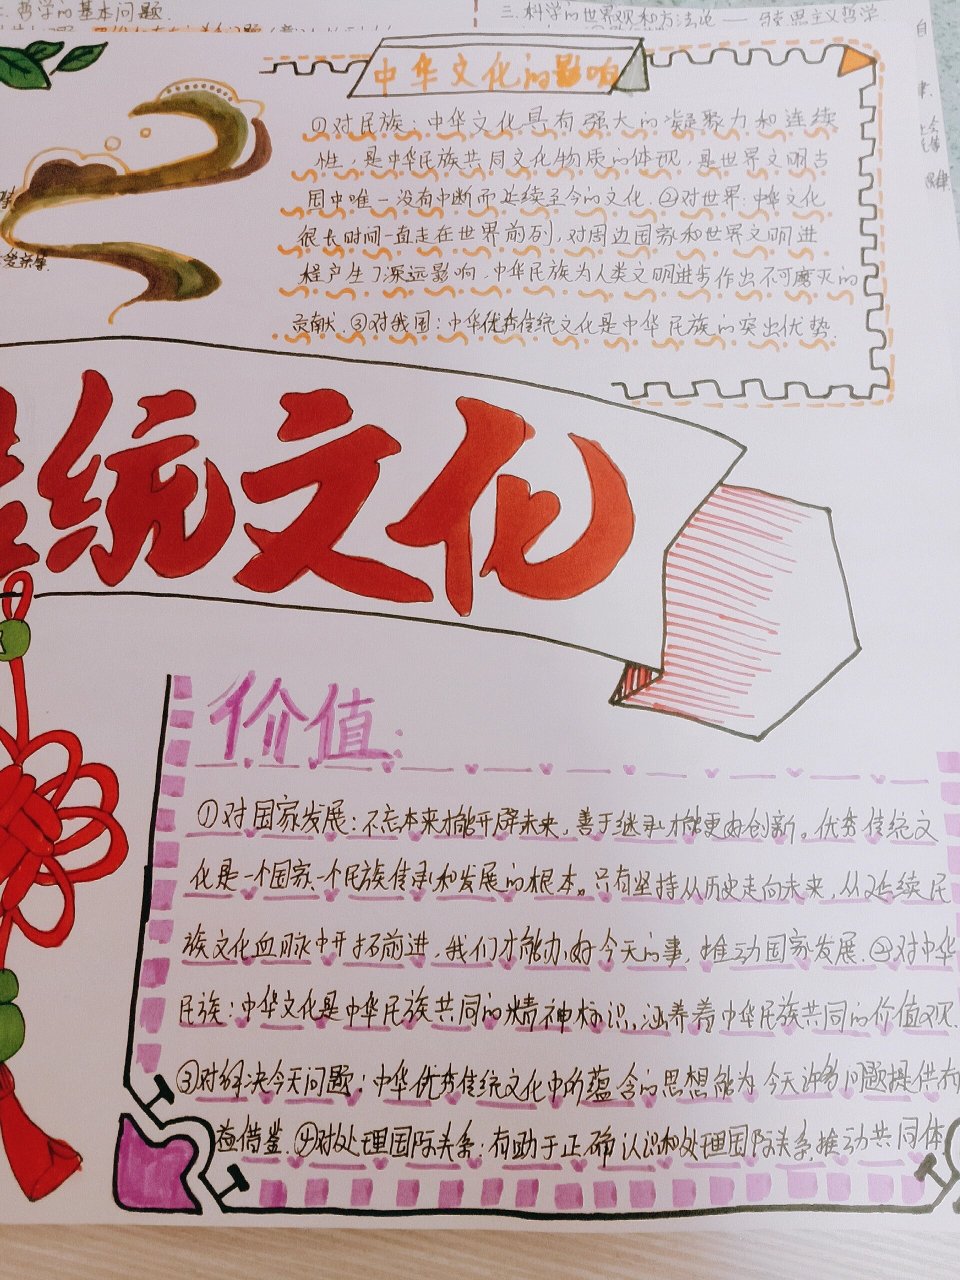 二.哲学的基本问题.
三.科学的世界观和方法论 —— 马克思主义哲学
自
中华文化的影响
①对民族:中华文化具有强大的凝聚力和连续
性,是中华民族共同文化物质的体现,是世界文明古
国中唯一没有中断而延续至今的文化.②对世界:中华文化
很长时间一直走在世界前列,对周边国家和世界文明进
程产生了深远影响.中华民族为人类文明进步作出不可磨灭的
贡献.③对我国:中华优秀传统文化是中华民族的突出优势.
传统文化
价值:
①对国家发展:不忘本来才能开辟未来,善于继承才能更好创新。优秀传统文
化是一个国家、一个民族传承和发展的根本。只有坚持从历史走向未来,从延续民
族文化血脉中开拓前进,我们才能办好今天的事,推动国家发展.②对中华
民族:中华文化是中华民族共同的精神标识,涵养着中华民族共同的价值观.
③对解决今天问题:中华优秀传统文化中所蕴含的思想能为今天许多问题提供有
益借鉴.④对处理国际关系:有助于正确认识和处理国际关系推动共同体